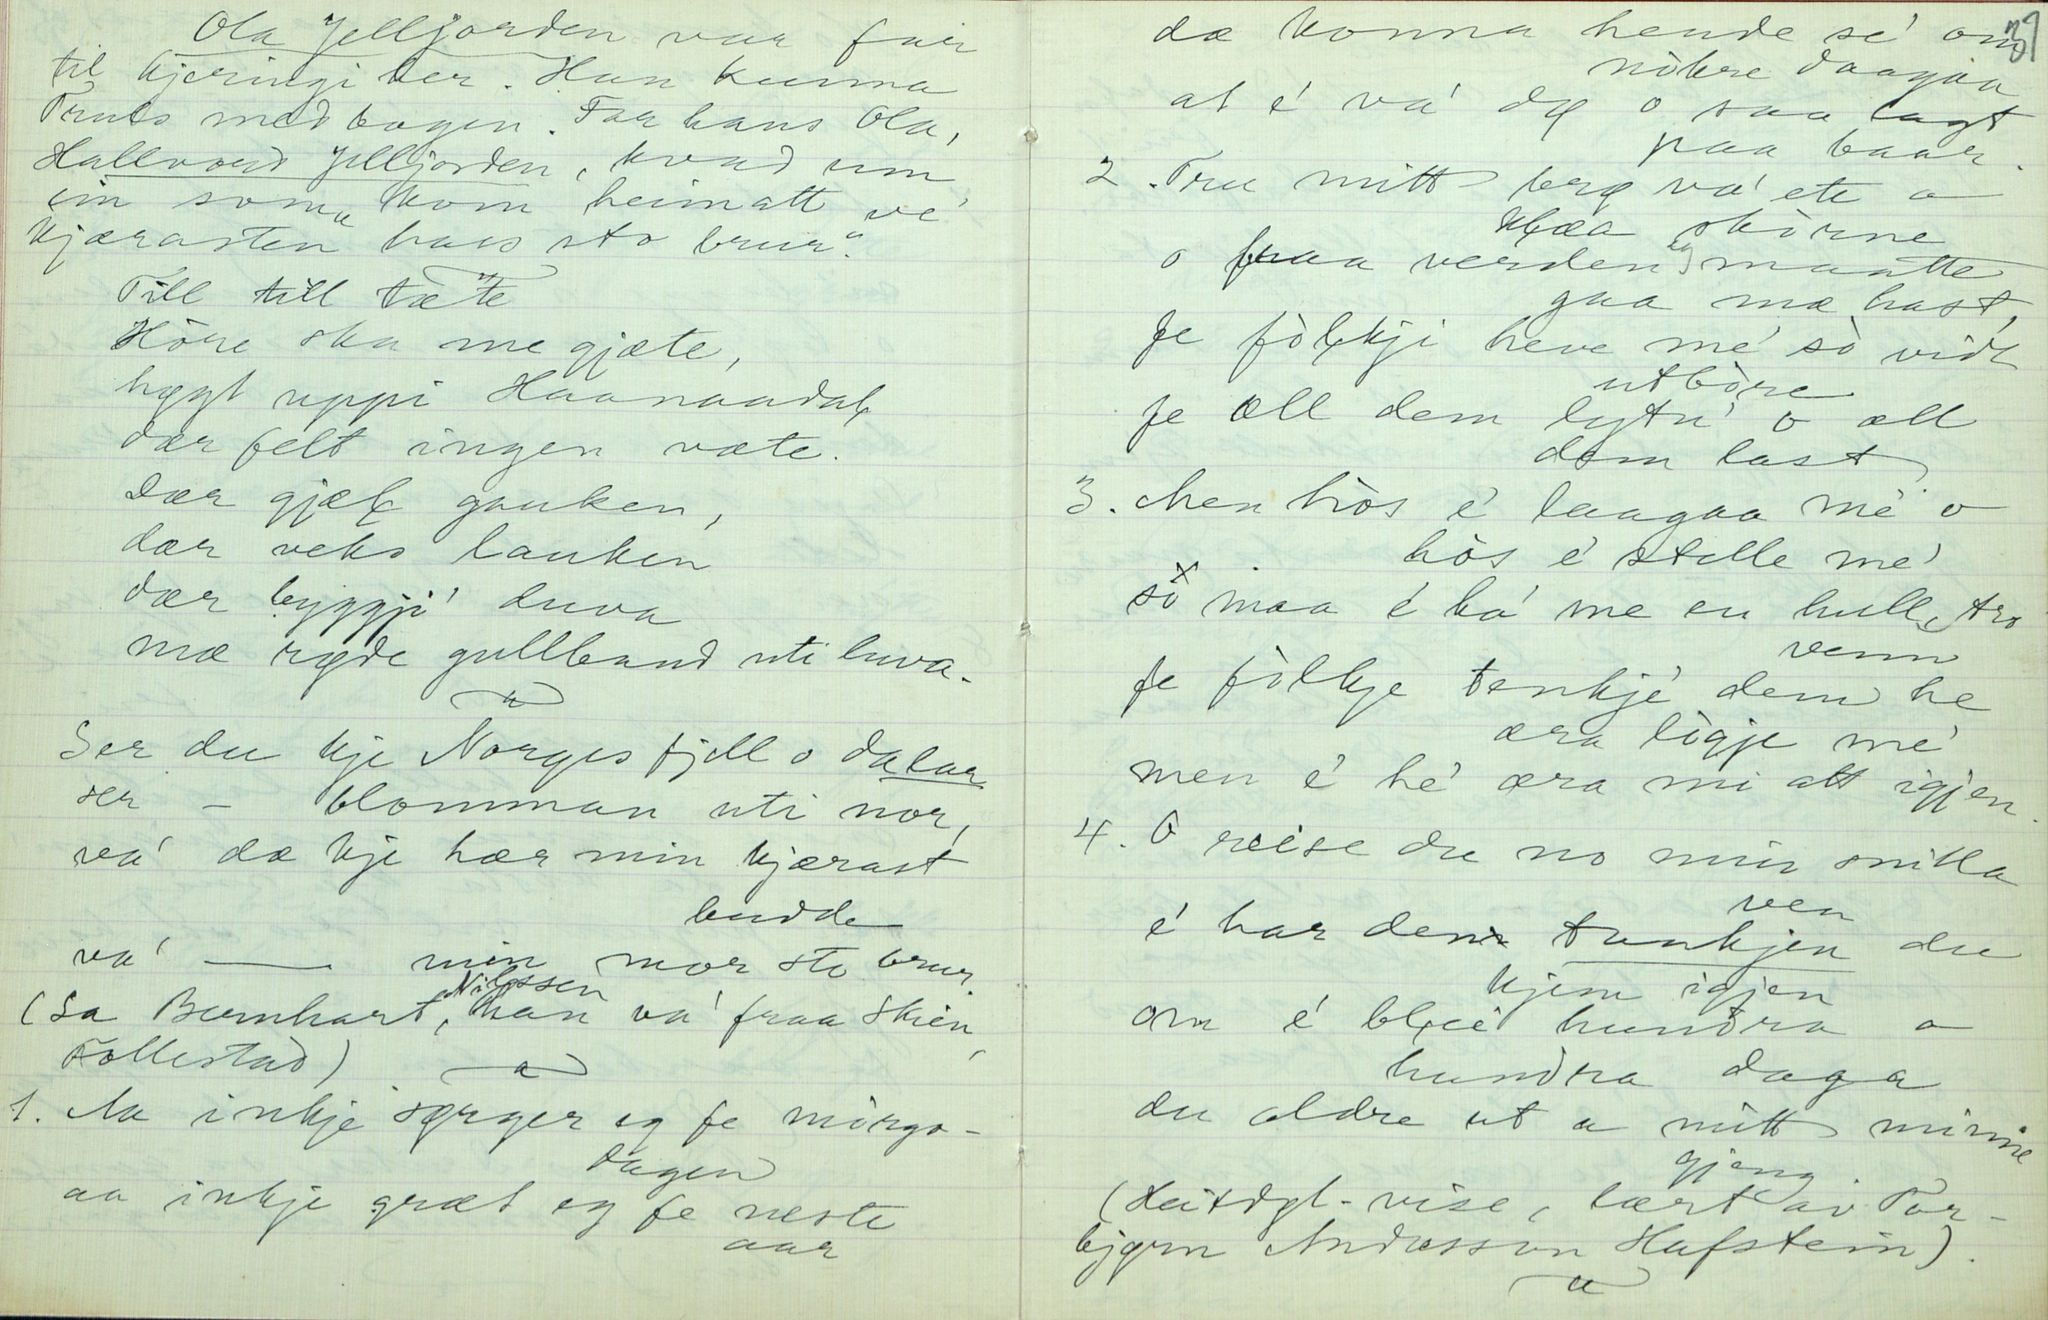 Ola Jelljorden var fair
til kjeringi her. Han kunna
Truls med bogin. Far hans Ola,
Hallvord Jelljorden, kvad um
ein soma kom heimatt "vé
kjærasten hass sto brur".
Till till tæte
Höre ska me gjæte,
høgt uppi Haanaadalę
dær felt ingen væte.
Dær gjælę gauken,
dær veks lauken
dær byggji' duva
mæ røde gullband uti luva.
Ser du kje Norges fjell o dalar
ser – blomman uti nor,
va' dæ kje hær min kjærast
budde
va' — min mor sto brur.
Nilssen
(Sa Bernhart, han va' fraa Skien,
Follestad)
1. Aa inkje sørger eg fe mòrgo-
dagen
aa inkje græt eg fe neste
aar
39
dæ konna hende se' om
nòkre daagaa
at é va' dø o saa lagt
paa baar.
2. Tru mitt berę va' ete o
klæa skòrne
o fraa verden eg maatte
gaa mæ hast,
fe fòlkji heve mé sò vidt
utbòre
fe all dem lytu' o all
dem last
3. Men hòs é laagaa mé o
hòs é stelle mé
sò maa é ha' me en hullę tro
venn
fe fòlkje tenkjé dem he
æra lògje mé
men é hé æra mi att igjen.
4. O reise du no min snilla
ven
é har dem tunkjen du
kjem igjen
om é bleé hundra o
hundra daga
du aldre ut a mitt minne
gjeng
(Heitdøl-vise, lært av Tor-
bjørn Andresson Hafstein).